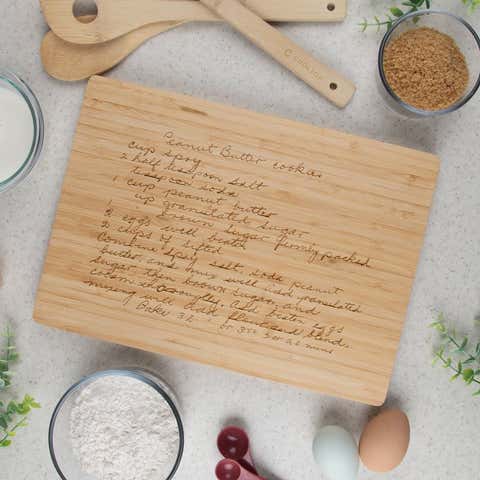 Peanut Butter cookies
cup spry
2 half teaspoon salt
tsp soda
1 cup peanut butter
1 cup granulated sugar
1 brown sugar firmly packed
2 eggs well beaten
2 cups of sifted
Combine spry salt, soda peanut
butter and mix well add granulated
sugar then brown sugar, and
cream thoroughly. add beaten eggs
mixing well add flour and blend.
Bake 32